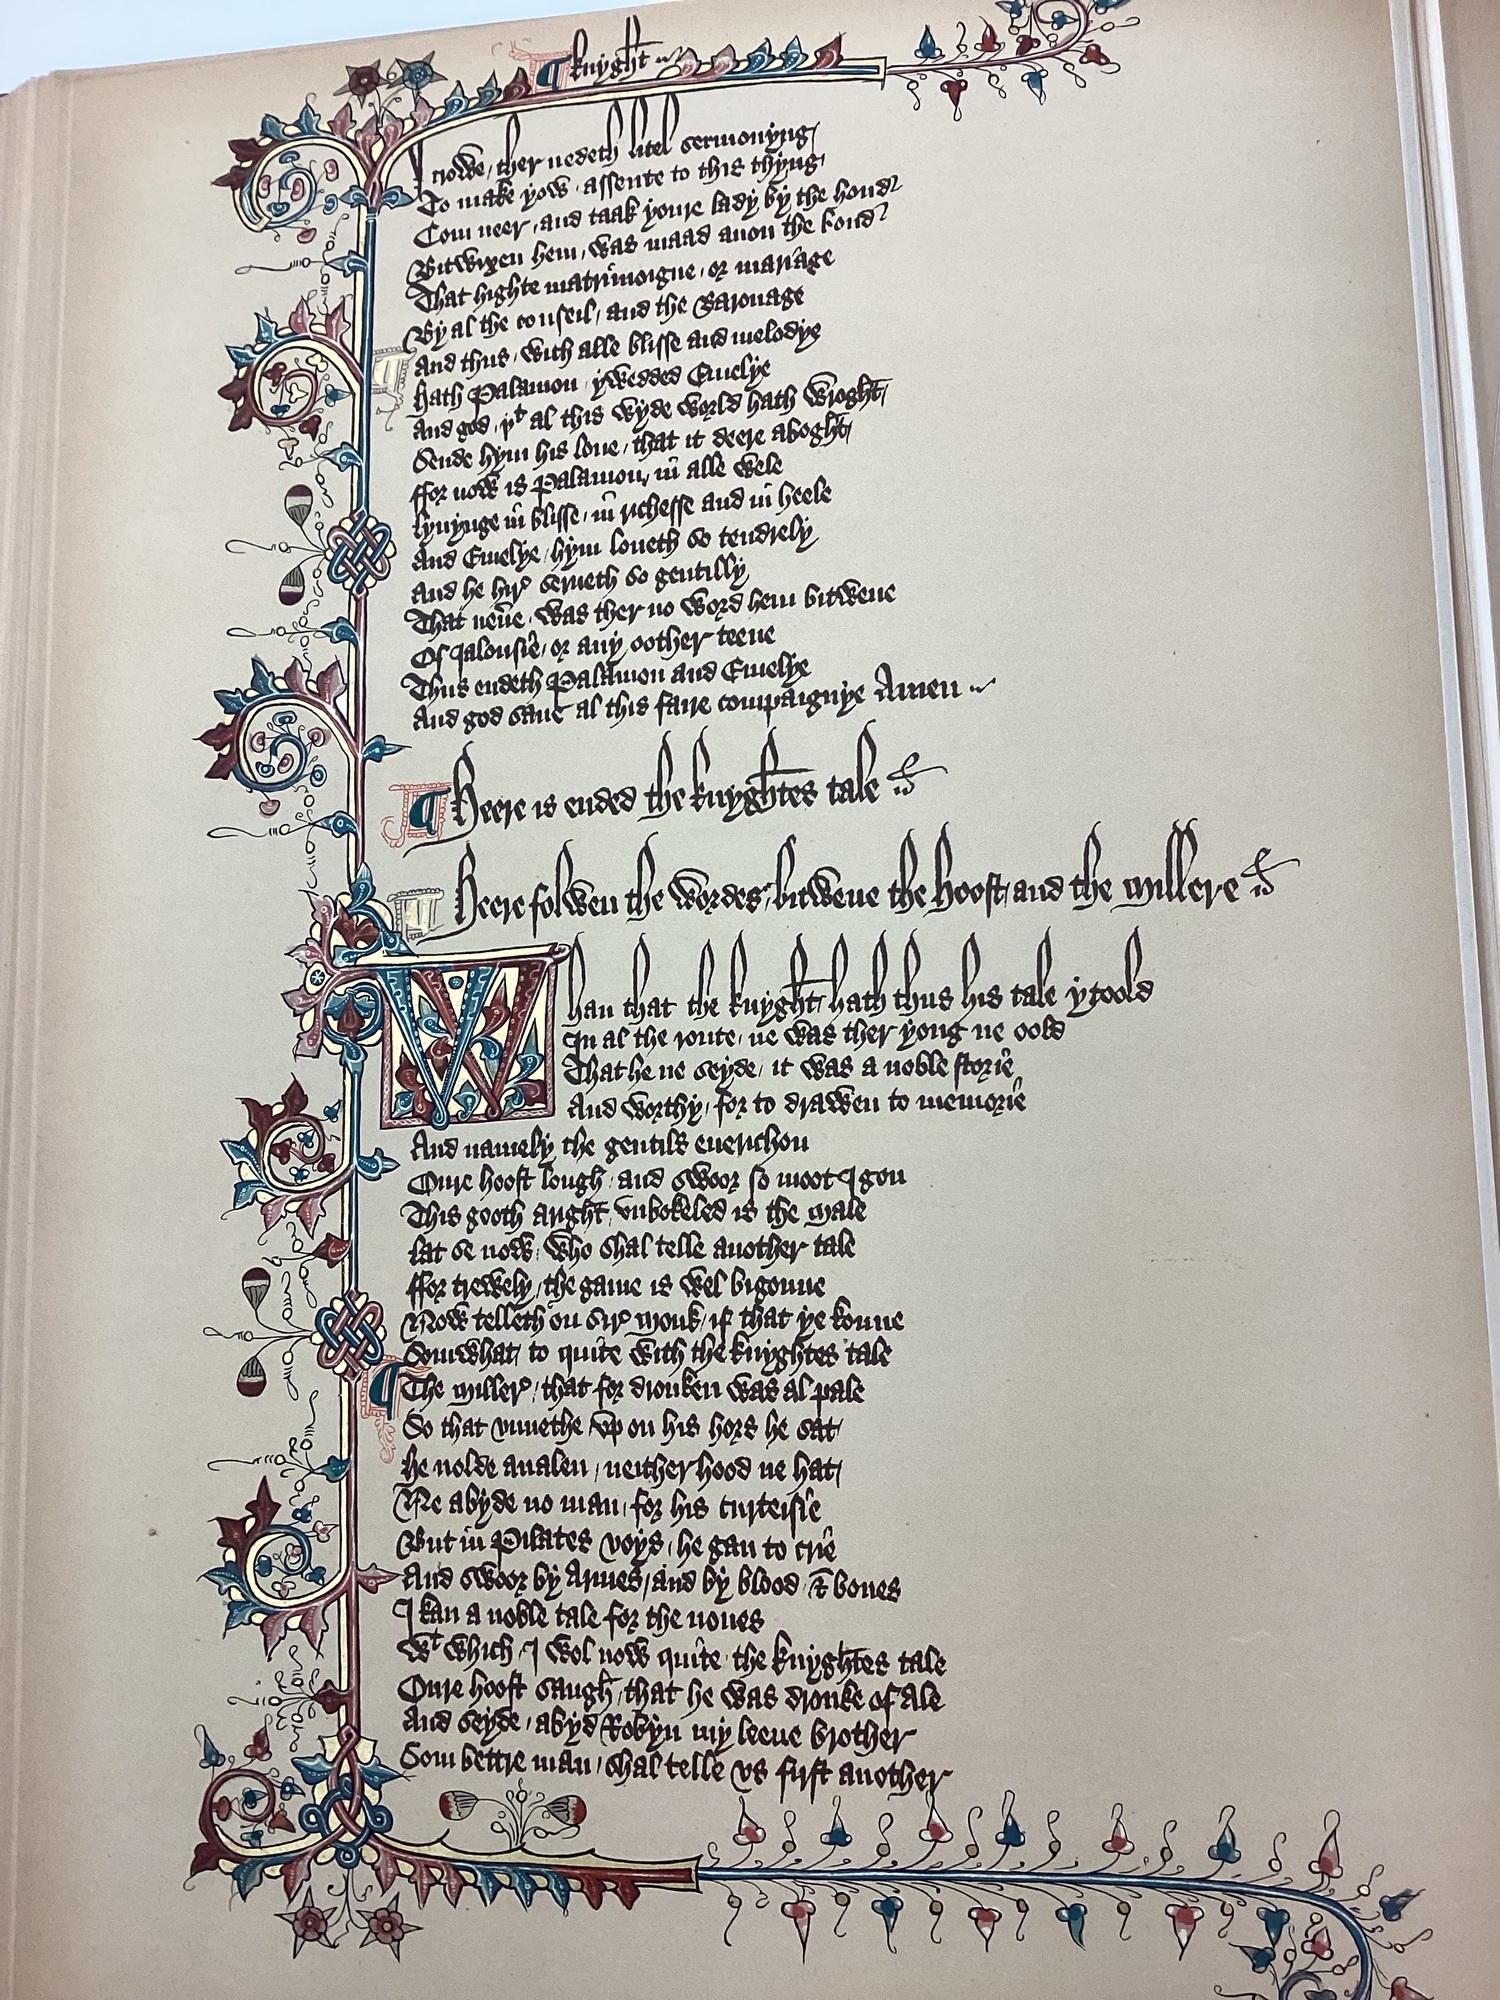 ¶ knyght
I trowe, ther nedeth litel sermonyng
To make yow, assente to this thyng
Com neer, and taak youre lady by the hond
Bitwixen hem, was maad anon the bond
That highte matrimoigne, or mariage
By al the conseil, and the Baronage
¶ And thus, with alle blisse and melodye
Hath Palamon ywedded Emelye
And god, yt al this wyde world hath wroght
Sende hym his loue, that it deere aboght
ffor now is Palamon, in alle wele
lyuynge in blisse, in richesse and in heele
And Emelye, hym loueth so tendrely
And he hir serueth so gentilly
That neuͤe, was ther no word hem bitwene
Of Ialousie, or any oother teene
Thus endeth Palamon and Emelye
And god saue al this faire compaignye Amen
¶ Heere is ended the knyghtes tale
¶ Heere folwen the wordes, bitwene the Hoost, and the Millere
Whan that the knyght, hath thus his tale ytoold
In al the route, ne was ther yong ne oold
That he ne seyde, it was a noble storie
And worthy, for to drawen to memorie
And namely, the gentils euerichon
Oure hoost lough, and swoor so moot I gon
This gooth aright, vnbokeled is the Male
lat se now, who shal telle another tale
ffor trewely, the game is wel bigonne
Now telleth on sir Monk, if that ye konne
Somwhat, to quite with the knyghtes tale
¶ The Miller, that for dronken was al pale
So that vnnethe, vp on his hors he sat
he nolde aualen, neither hood ne hat
Ne abyde no man, for his curteisie
But in Pilates voys, he gan to crie
And swoor by Armes, and by blood & bones
I kan a noble tale for the nones
Wt which, I wol now quite, the knyghtes tale
Oure hoost saugh, that he was dronke of ale
And seyde, abyd Robyn my leeue brother
Som bettre man, shal telle vs first another